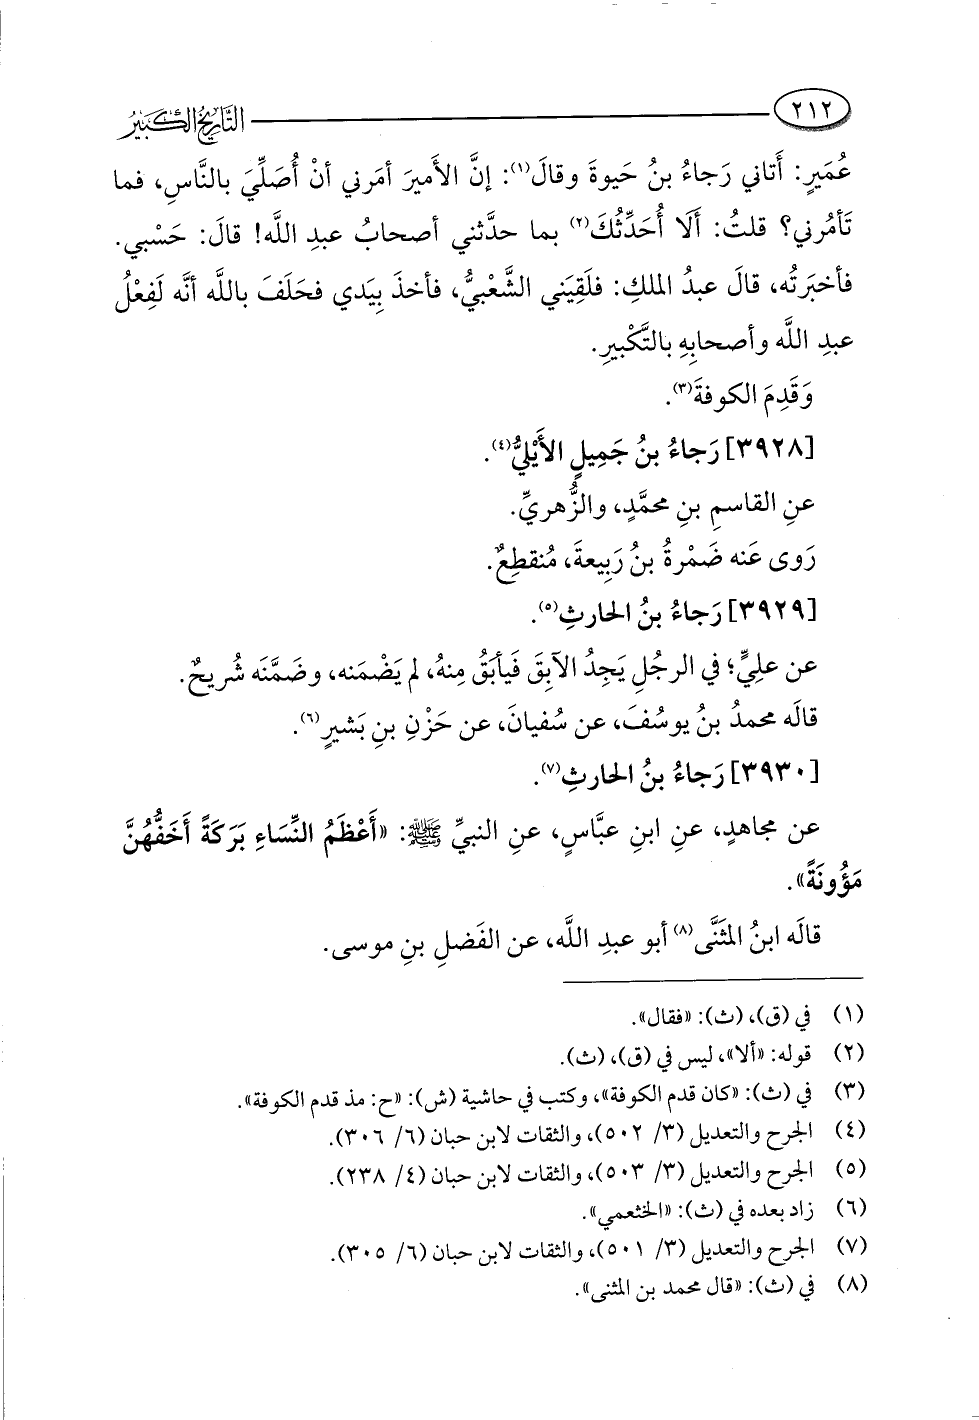 ٢١٢
التاريخ الكبير
عُمَيرٍ: أَتاني رَجاءُ بنُ حَيوةَ وقالَ(١): إنَّ الأَميرَ أمَرني أنْ أُصَلِّيَ بالنَّاسِ، فما
تَأمُرني؟ قلتُ: أَلَا أُحَدِّثُكَ(٢) بما حدَّثني أصحابُ عبدِ اللَّه! قالَ: حَسْبي.
فأخبَرتُه، قالَ عبدُ الملكِ: فلَقِيَني الشَّعْبيُّ، فأخذَ بِيَدي فحَلَفَ باللَّه أنَّه لَفِعْلُ
عبدِ اللَّه وأصحابِهِ بالتَّكْبيرِ.
وَقَدِمَ الكوفةَ(٣).
[٣٩٢٨] رَجاءُ بنُ جَمِيلٍ الأَيْليُّ(٤).
عنِ القاسمِ بنِ محمَّدٍ، والزُّهريِّ.
رَوى عَنه ضَمْرةُ بنُ رَبِيعةَ، مُنقطِعٌ.
[٣٩٢٩] رَجاءُ بنُ الحارثِ(٥).
عن علِيٍّ؛ في الرجُلِ يَجِدُ الآبِقَ فَيأبَقُ مِنهُ، لم يَضْمَنه، وضَمَّنَه شُريحٌ.
قالَه محمدُ بنُ يوسُفَ، عن سُفيانَ، عن حَزْنِ بنِ بَشيرٍ(٦).
[٣٩٣٠] رَجاءُ بنُ الحارثِ(٧).
عن مجاهدٍ، عنِ ابنِ عبَّاسٍ، عنِ النبيِّ ﷺ: «أَعْظَمُ النِّسَاءِ بَرَكَةً أَخَفُّهُنَّ
مَؤُونَةً».
قالَه ابنُ المثَنَّى(٨) أبو عبدِ اللَّه، عن الفَضلِ بنِ موسى.
(١) في (ق)، (ث): «فقال».
(٢) قوله: «ألا»، ليس في (ق)، (ث).
(٣) في (ث): «كان قدم الكوفة»، وكتب في حاشية (ش): «ح: مذ قدم الكوفة».
(٤) الجرح والتعديل (٣/ ٥٠٢)، والثقات لابن حبان (٦/ ٣٠٦).
(٥) الجرح والتعديل (٣/ ٥٠٣)، والثقات لابن حبان (٤/ ٢٣٨).
(٦) زاد بعده في (ث): «الخثعمي».
(٧) الجرح والتعديل (٣/ ٥٠١)، والثقات لابن حبان (٦/ ٣٠٥).
(٨) في (ث): «قال محمد بن المثنى».